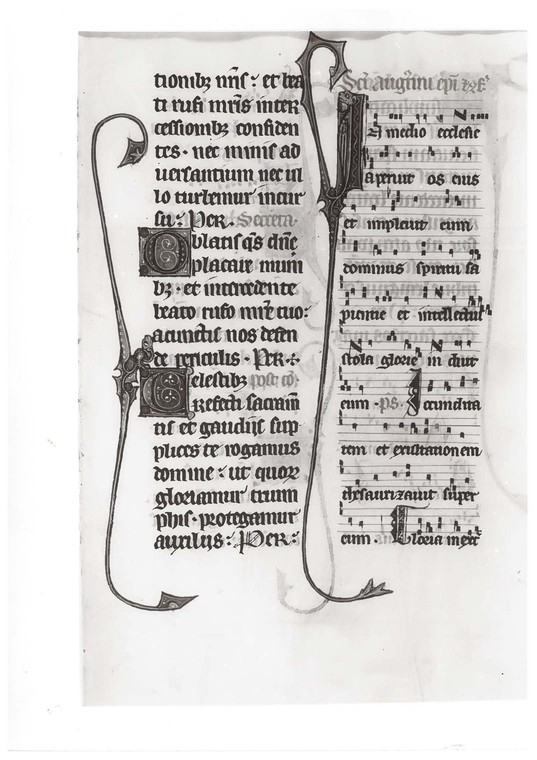 tionibꝫ nr̄is · et bea
ti rufi mr̄is inter
cessionibꝫ confiden
tes · nec minis ad
uersantium nec ul
lo turbemur incur
su: Per. Secreta.
Oblatis qs dn̄e
placare mune
bꝫ · et intercedente
beato rufo mr̄e tuo:
a cunctis nos defen
de periculis · Per ·
Celestibꝫ post cō.
refecti sacram̄
tis et gaudijs sup
plices te rogamus
domine: ut quoꝝ
gloriamur trium
phis · protegamur
auxilijs: Per:
Sc̄i augustini epī
IN medio ecclesie
aperuit os eius
et impleuit eum
dominus spiritu sa
pientie et intellectus
stola glorie induit
eum · ps. Iocundita
tem et exultationem
thesaurizauit super
eum · Gloria